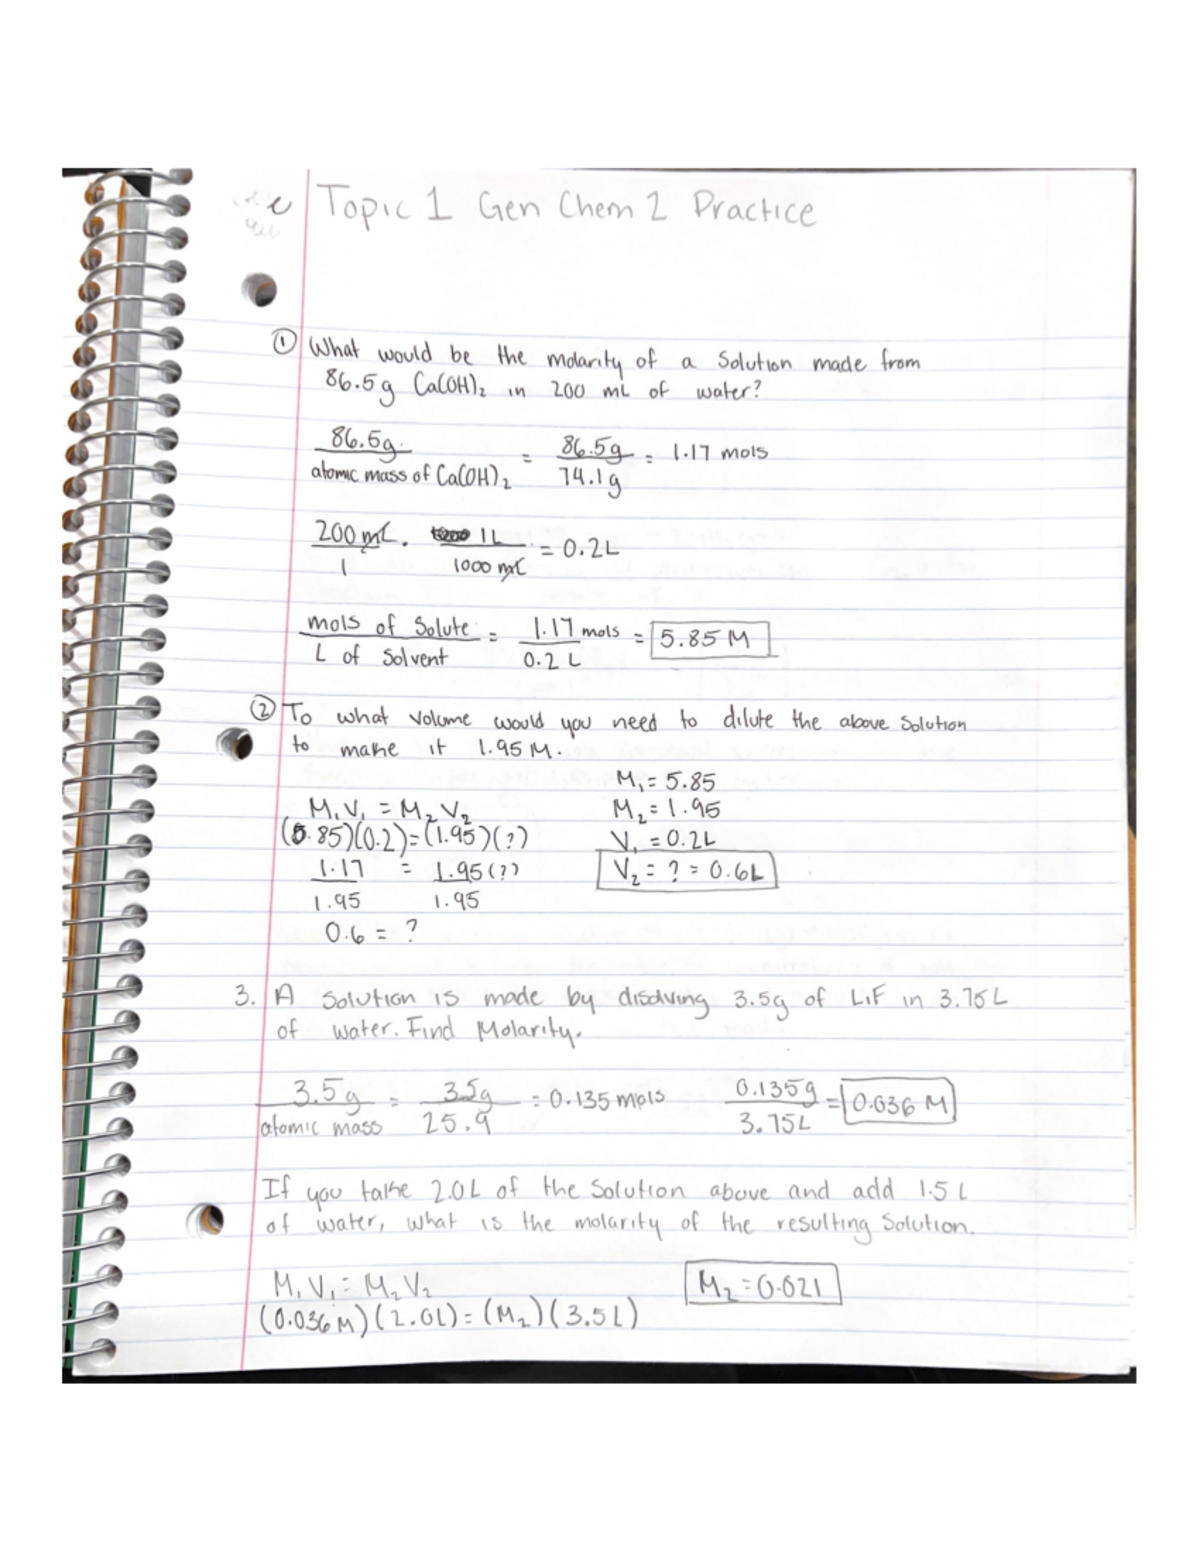 Topic 1 Gen Chem 2 Practice
① What would be the molarity of a Solution made from
86.5g Ca(OH)₂ in 200 mL of water?
86.5g / atomic mass of Ca(OH)₂ = 86.5g / 74.1g = 1.17 mols
200 mL / 1 · 1L / 1000 mL = 0.2L
mols of Solute / L of Solvent = 1.17 mols / 0.2 L = 5.85 M
② To what volume would you need to dilute the above solution
to make it 1.95 M.
M₁ = 5.85
M₁V₁ = M₂V₂ M₂ = 1.95
(5.85)(0.2) = (1.95)(?) V₁ = 0.2L
1.17 / 1.95 = 1.95(?) / 1.95 V₂ = ? = 0.6L
0.6 = ?
3. A Solution is made by disolving 3.5g of LiF in 3.75L
of water. Find Molarity.
3.5g / atomic mass = 3.5g / 25.9 = 0.135 mols 0.135g / 3.75L = 0.036 M
If you take 2.0L of the Solution above and add 1.5 L
of water, what is the molarity of the resulting Solution.
M₁V₁ = M₂V₂ M₂ = 0.021
(0.036 M)(2.0L) = (M₂)(3.5L)